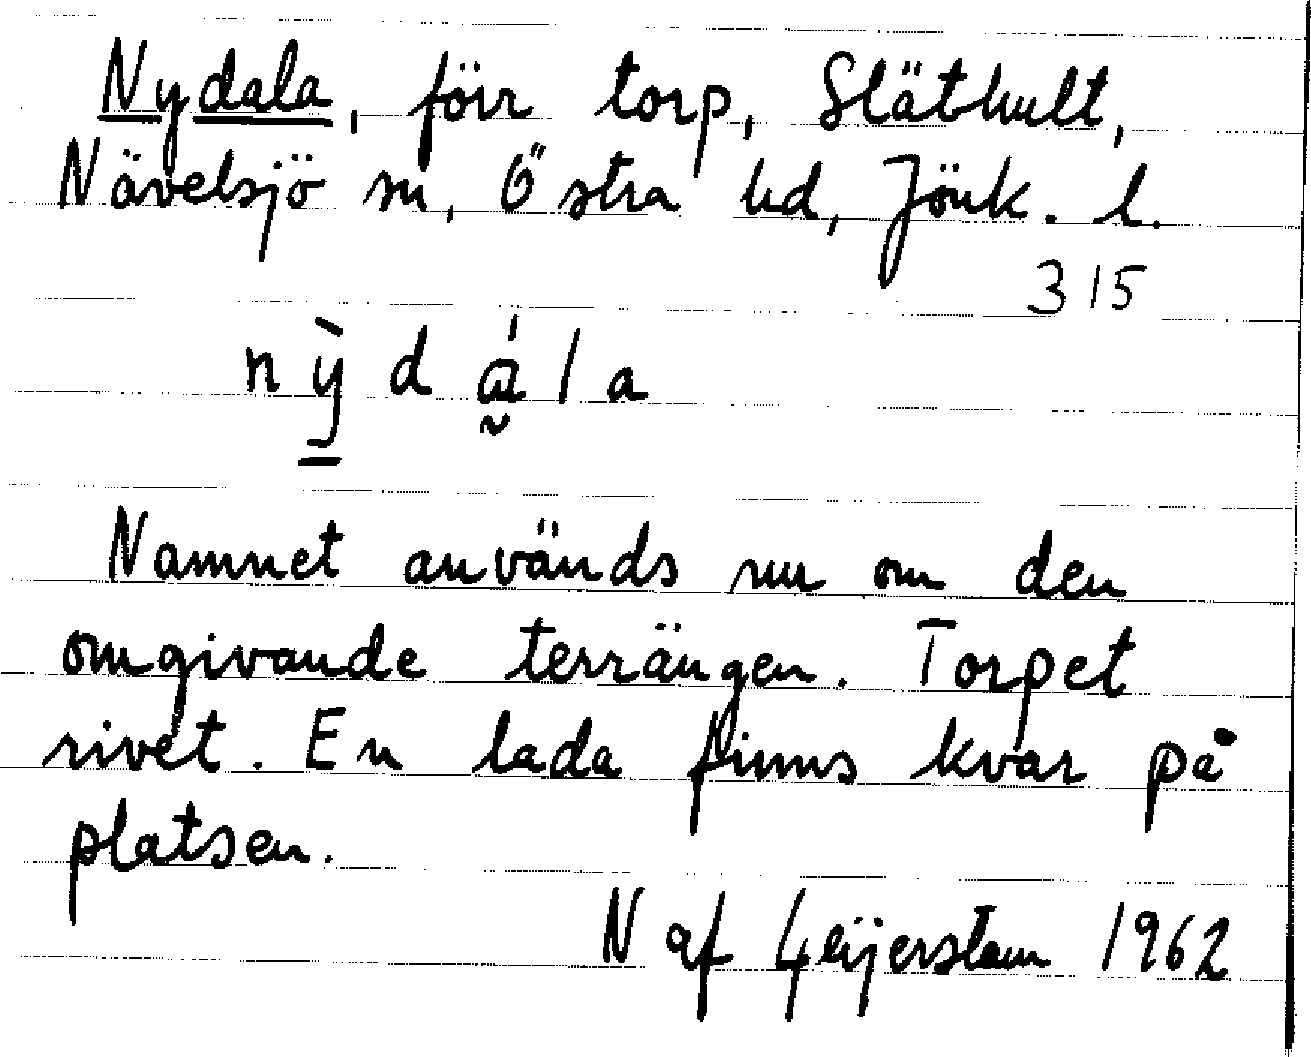 Nydala, förr torp, Släthult,
Nävelsjö sn, Östra hd, Jönk. l.
315
nỳdála
Namnet används nu om den
omgivande terrängen. Torpet
rivet. En lada finns kvar på
platsen.
N af Geijerstam 1962